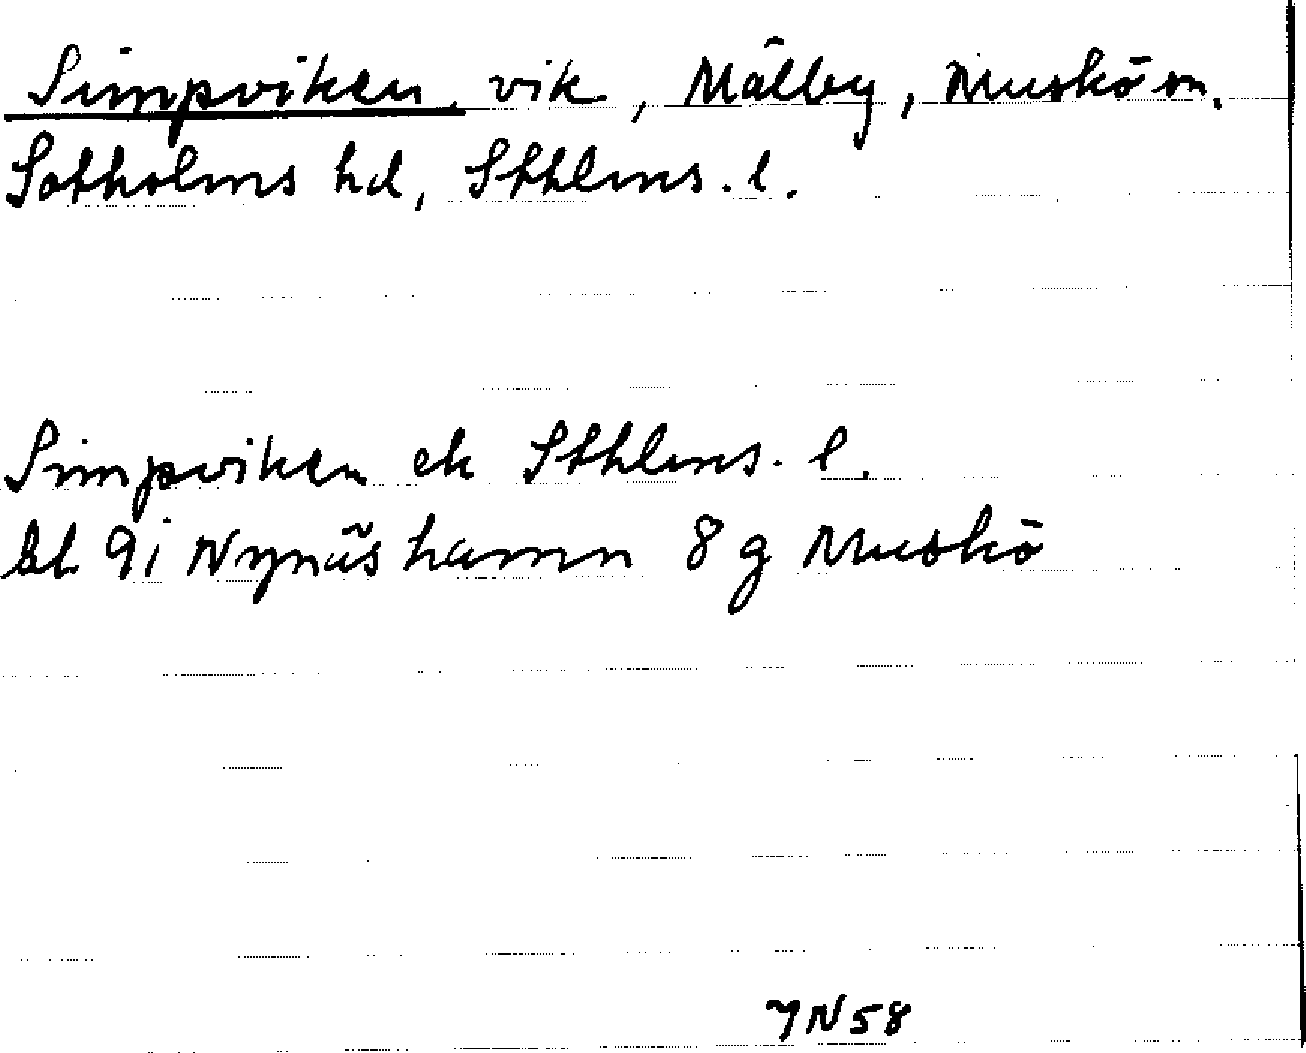 Simpviken, vik, Mälby, Muskö sn.
Sotholms hd, Sthlms. l.
Simpviken ek Sthlms. l.
bl 9i Nynäshamn 8 g Muskö
YN58